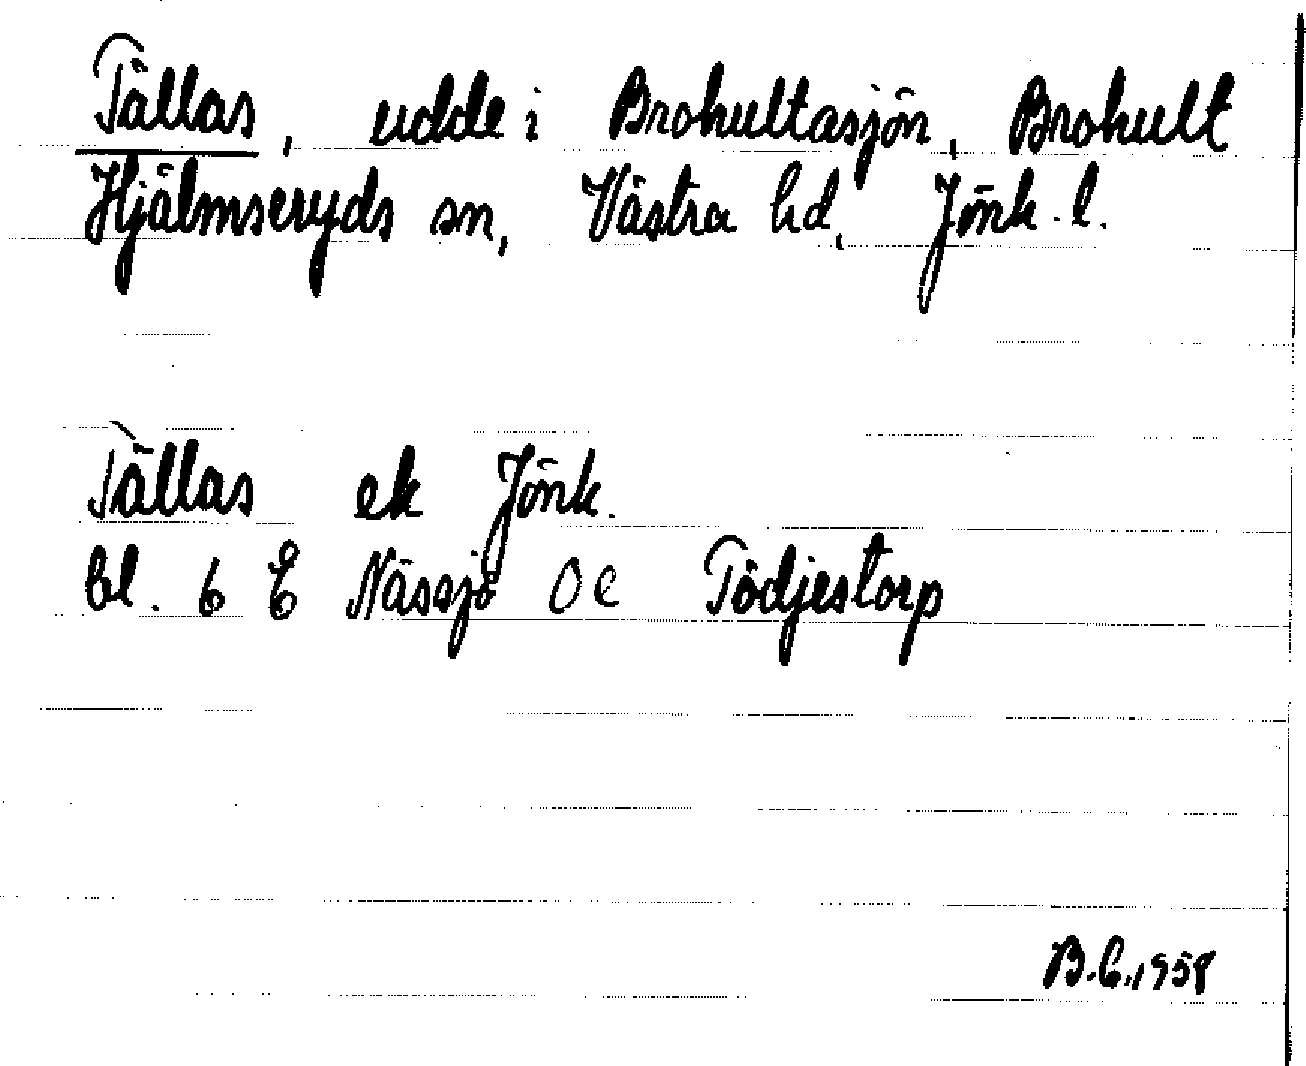 Tällas, udde i Brohultasjön, Brohult
Hjälmseryds sn, Västra hd, Jönk. l.
Tällas ek Jönk.
bl. 6 E Nässjö 0 e Tödjestorp
B.C., 1958